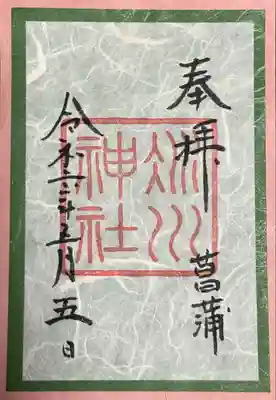 奉拝 菖蒲
氷川
神社
令和三年五月五日